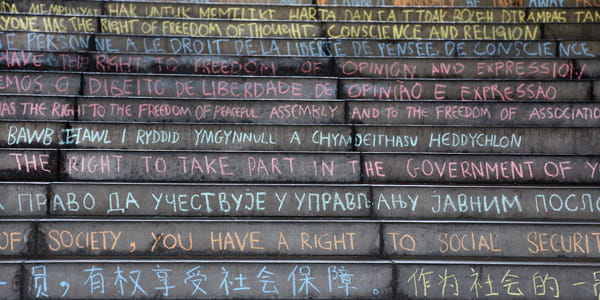 MEMPUNYAI HAK UNTUK MEMILIKI HARTA DAN IA TIDAK BOLEH DIRAMPAS
YONE HAS THE RIGHT OF FREEDOM OF THOUGHT, CONSCIENCE AND RELIGION
PERSONNE A LE DROIT DE LA LIBERTE DE PENSEE, DE CONSCIENCE,
HAVE THE RIGHT TO FREEDOM OF OPINION AND EXPRESSION
EMOS O DIREITO DE LIBERDADE DE OPINIÃO E EXPRESSÃO
HAS THE RIGHT TO THE FREEDOM OF PEACEFUL ASSEMBLY AND TO THE FREEDOM OF ASSOCIATIO
BAWB HAWL I RYDDID YMGYNNULL A CHYMDEITHASU HEDDYCHLON
THE RIGHT TO TAKE PART IN HE GOVERNMENT OF Y
ПРАВО ДА УЧЕСТВУЈЕ У УПРАВЉАЊУ ЈАВНИМ ПОСЛО
OF SOCIETY, YOU HAVE A RIGHT TO SOCIAL SECURIT
一员,有权享受社会保障。 作为社会的一员